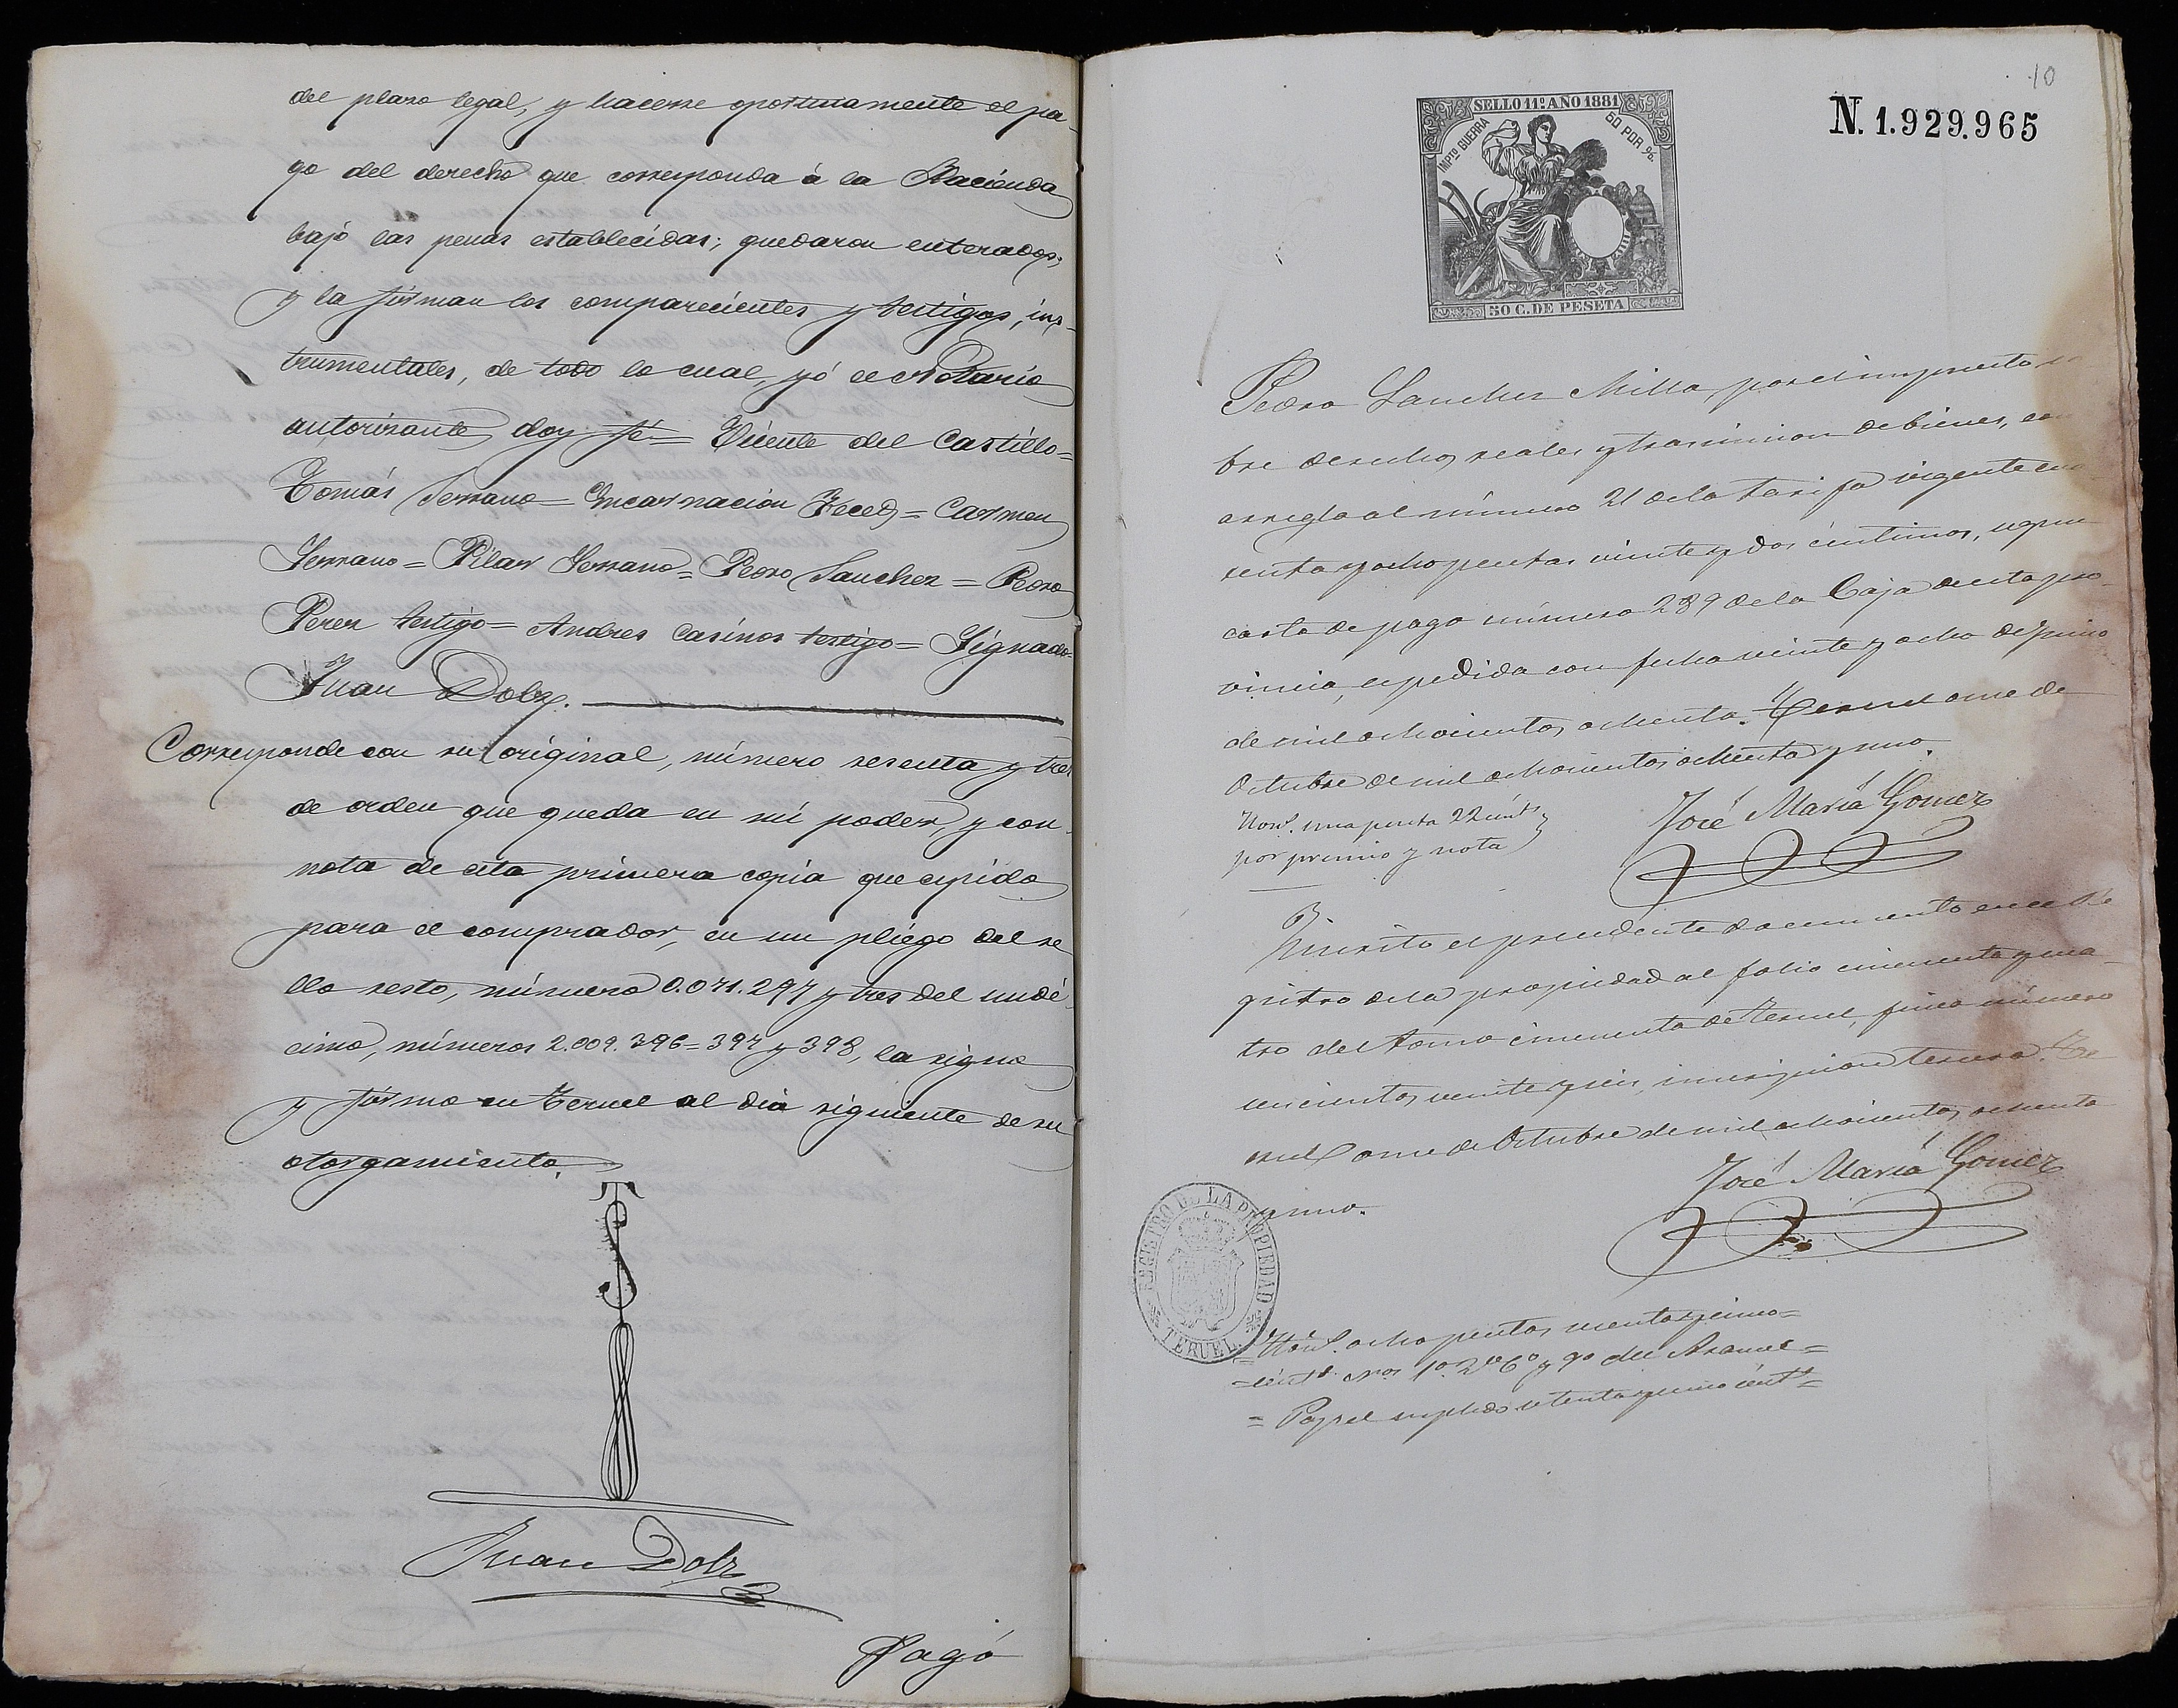 del plazo legal, y hacerse oportunamente el pa-
go del derecho que corresponda á la Hacienda
bajo las penas establecidas; quedaron enterados,
y la firman los comparecientes y testigos, ins-
trumentales, de todo lo cual, yó el Notario
autorizante, doy fé = Vicente del Castillo =
Tomás Serrano = Encarnacion Feced = Carmen
Serrano = Pilar Serrano = Pedro Sanchez = Pedro
Perez testigo = Andres Casinos testigo = Signado =
Juan Dolz.
Corresponde con su original, número sesenta y tres
de orden que queda en mi poder, y con
nota de esta primera copia que espido
para el comprador, en un pliego del se
llo sesto, número 0.071.297 y tres del undé
cimo, números 2.009.396 = 397 y 398, la signo
y firmo en Teruel al dia siguiente de su
otorgamiento.
Juan Dolz
Pagó
10
SELLO 11º AÑO 1881
IMPTO GUERRA
50 POR %
50 C. DE PESETA
N. 1.929.965
Pedro Sanchez Milla, por el impuesto so
bre derechos reales y trasmision de bienes, con
arreglo al número 21 de la tarifa vigente cua
renta y ocho pesetas veinte y dos céntimos, segun
carta de pago número 289 de la Caja de esta pro-
vincia, espedida con fecha veinte y ocho de Junio
de mil ochocientos ochenta. Teruel once de
Octubre de mil ochocientos ochenta y uno.
Hons. una peseta 22 cénts
por premio y nota
José María Gomez
Inscrito el precedente documento en el Re
gistro de la propiedad al folio cincuenta y cua-
tro del tomo cincuenta de Teruel, finca número
seiscientos veinte y seis, inscripcion tercera. Te-
ruel once de Octubre de mil ochocientos ochenta
y uno.
José María Gomez
REGISTRO DE LA PROPIEDAD
TERUEL
= Hons. ocho pesetas setenta y cinco =
= cénts. Nos 1º 2º 6º y 9º del Arancel =
= Papel suplido setenta y cinco cénts =